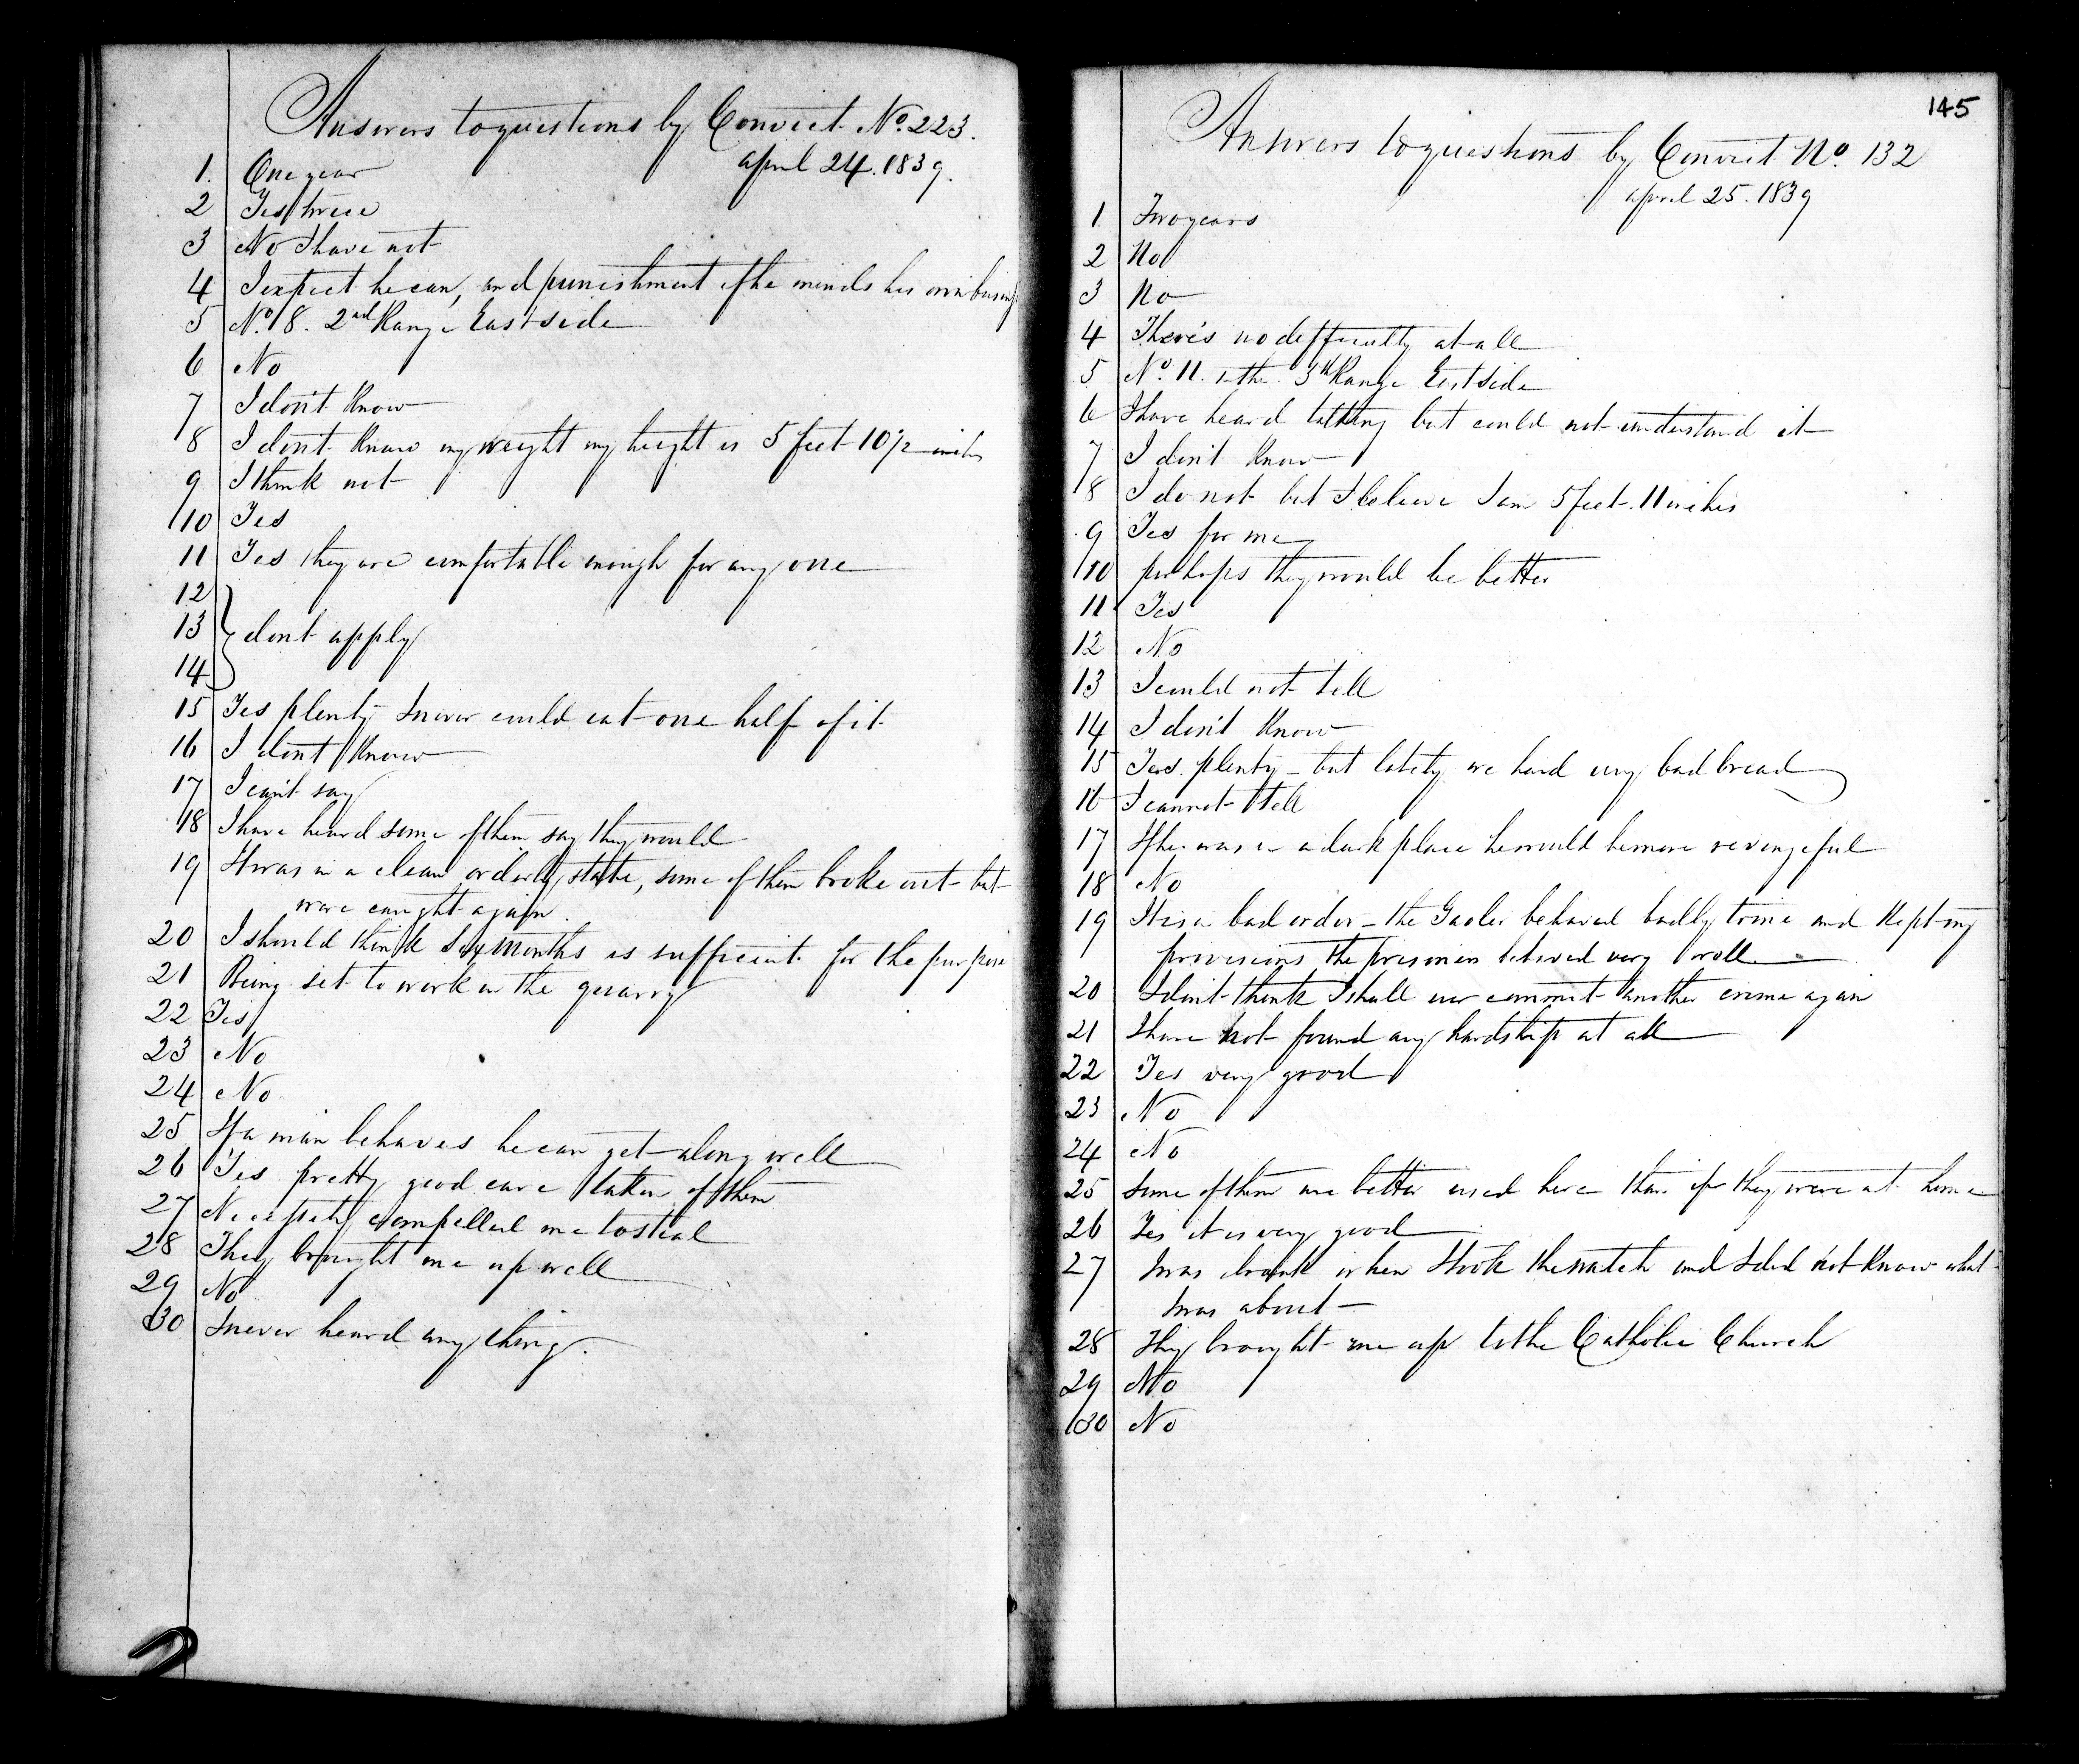 Answers to questions by Convict No. 223.
april 24. 1839.
1. One year
2 Yes twice
3 No I have not
4 I expect he can, and punishment if he minds his own business
5 No. 8. 2nd Range East side
6 No
7 I don't know
8 I don't know my weight my height is 5 feet 10 1/2 inches
9 I think not
10 Yes
11 Yes they are comfortable enough for any one
12
13 dont apply
14
15 Yes plenty I never could eat one half of it
16 I dont know
17 I can't say
18 I have heard some of them say they would
19 It was in a clean orderly state, some of them broke out but
were caught again.
20 I should think six months is sufficient for the purpose
21 Being set to work in the quarry
22 Yes
23 No
24 No
25 If a man behaves he can get along well
26 Yes pretty good care taken of them
27 Necessity compelled me to steal
28 They brought me up well
29 No
30 I never heard any thing.
145
Answers to questions by Convict No. 132
april 25. 1839
1 Two years
2 No
3 No
4 There's no difficulty at all
5 No. 11. in the Range East side
6 I have heard talking but could not understand it
7 I don't know
8 I do not but I believe I am 5 feet. 11 inches
9 Yes for me
10 perhaps they would be better
11 Yes
12 No
13 I could not tell
14 I don't know
15 Yes. plenty - but lately we had very bad bread
16 I cannot tell
17 If he was in a dark place he would be more revengeful
18 No
19 It is in bad order - the Gaoler behaved badly to me and kept my
provisions the prisoners behaved very well
20 I don't think I shall ever commit another crime again
21 I have not found any hardship at all
22 Yes very good
23 No
24 No
25 Some of them are better used here than if they were at home
26 Yes it is very good
27 I was drunk when I took the watch and I did not know what
I was about -
28 They brought me up to the Catholic Church
29 No
30 No